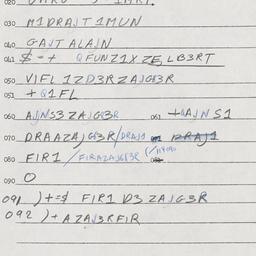 030 M1DRAJT 1MUN
040 GAJT ALAJN
041 $ - + QFUNZ1X ZE, LB3RT
050 VIFL 1ZD3RZAJGB3R
051 + Q1FL
060 AJNS3 ZAJGB3R 061 +QAJN S1
070 DRAAZAJGB3R/DRAJ1 DRAJ1
080 FIR1 / FIRAZAJGB3R
090 O
091 ) + =$ FIR1 D3 ZAJG3R
092 ) + AZAJB3RFIR